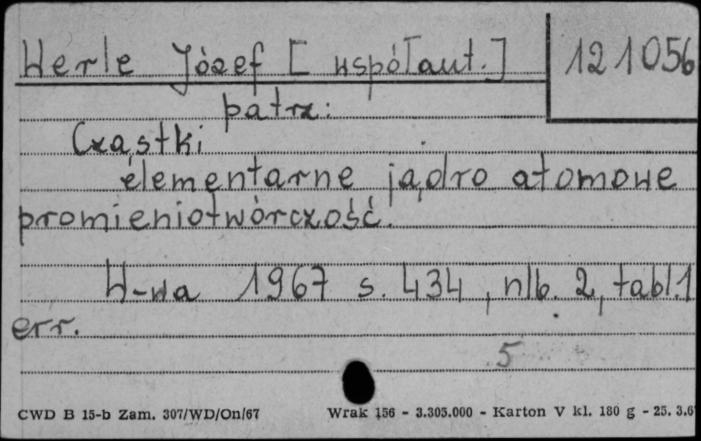 Werle Józef [współaut.] 121056
patrz:
Cząstki
elementarne jądro atomowe
promieniotwórczość.
W-wa 1967 s. 434, nlb. 2, tabl.1
err.
5
CWD B 15-b Zam. 307/WD/On/67 Wrak 156 - 3.305.000 - Karton V kl. 180 g - 25. 3.6